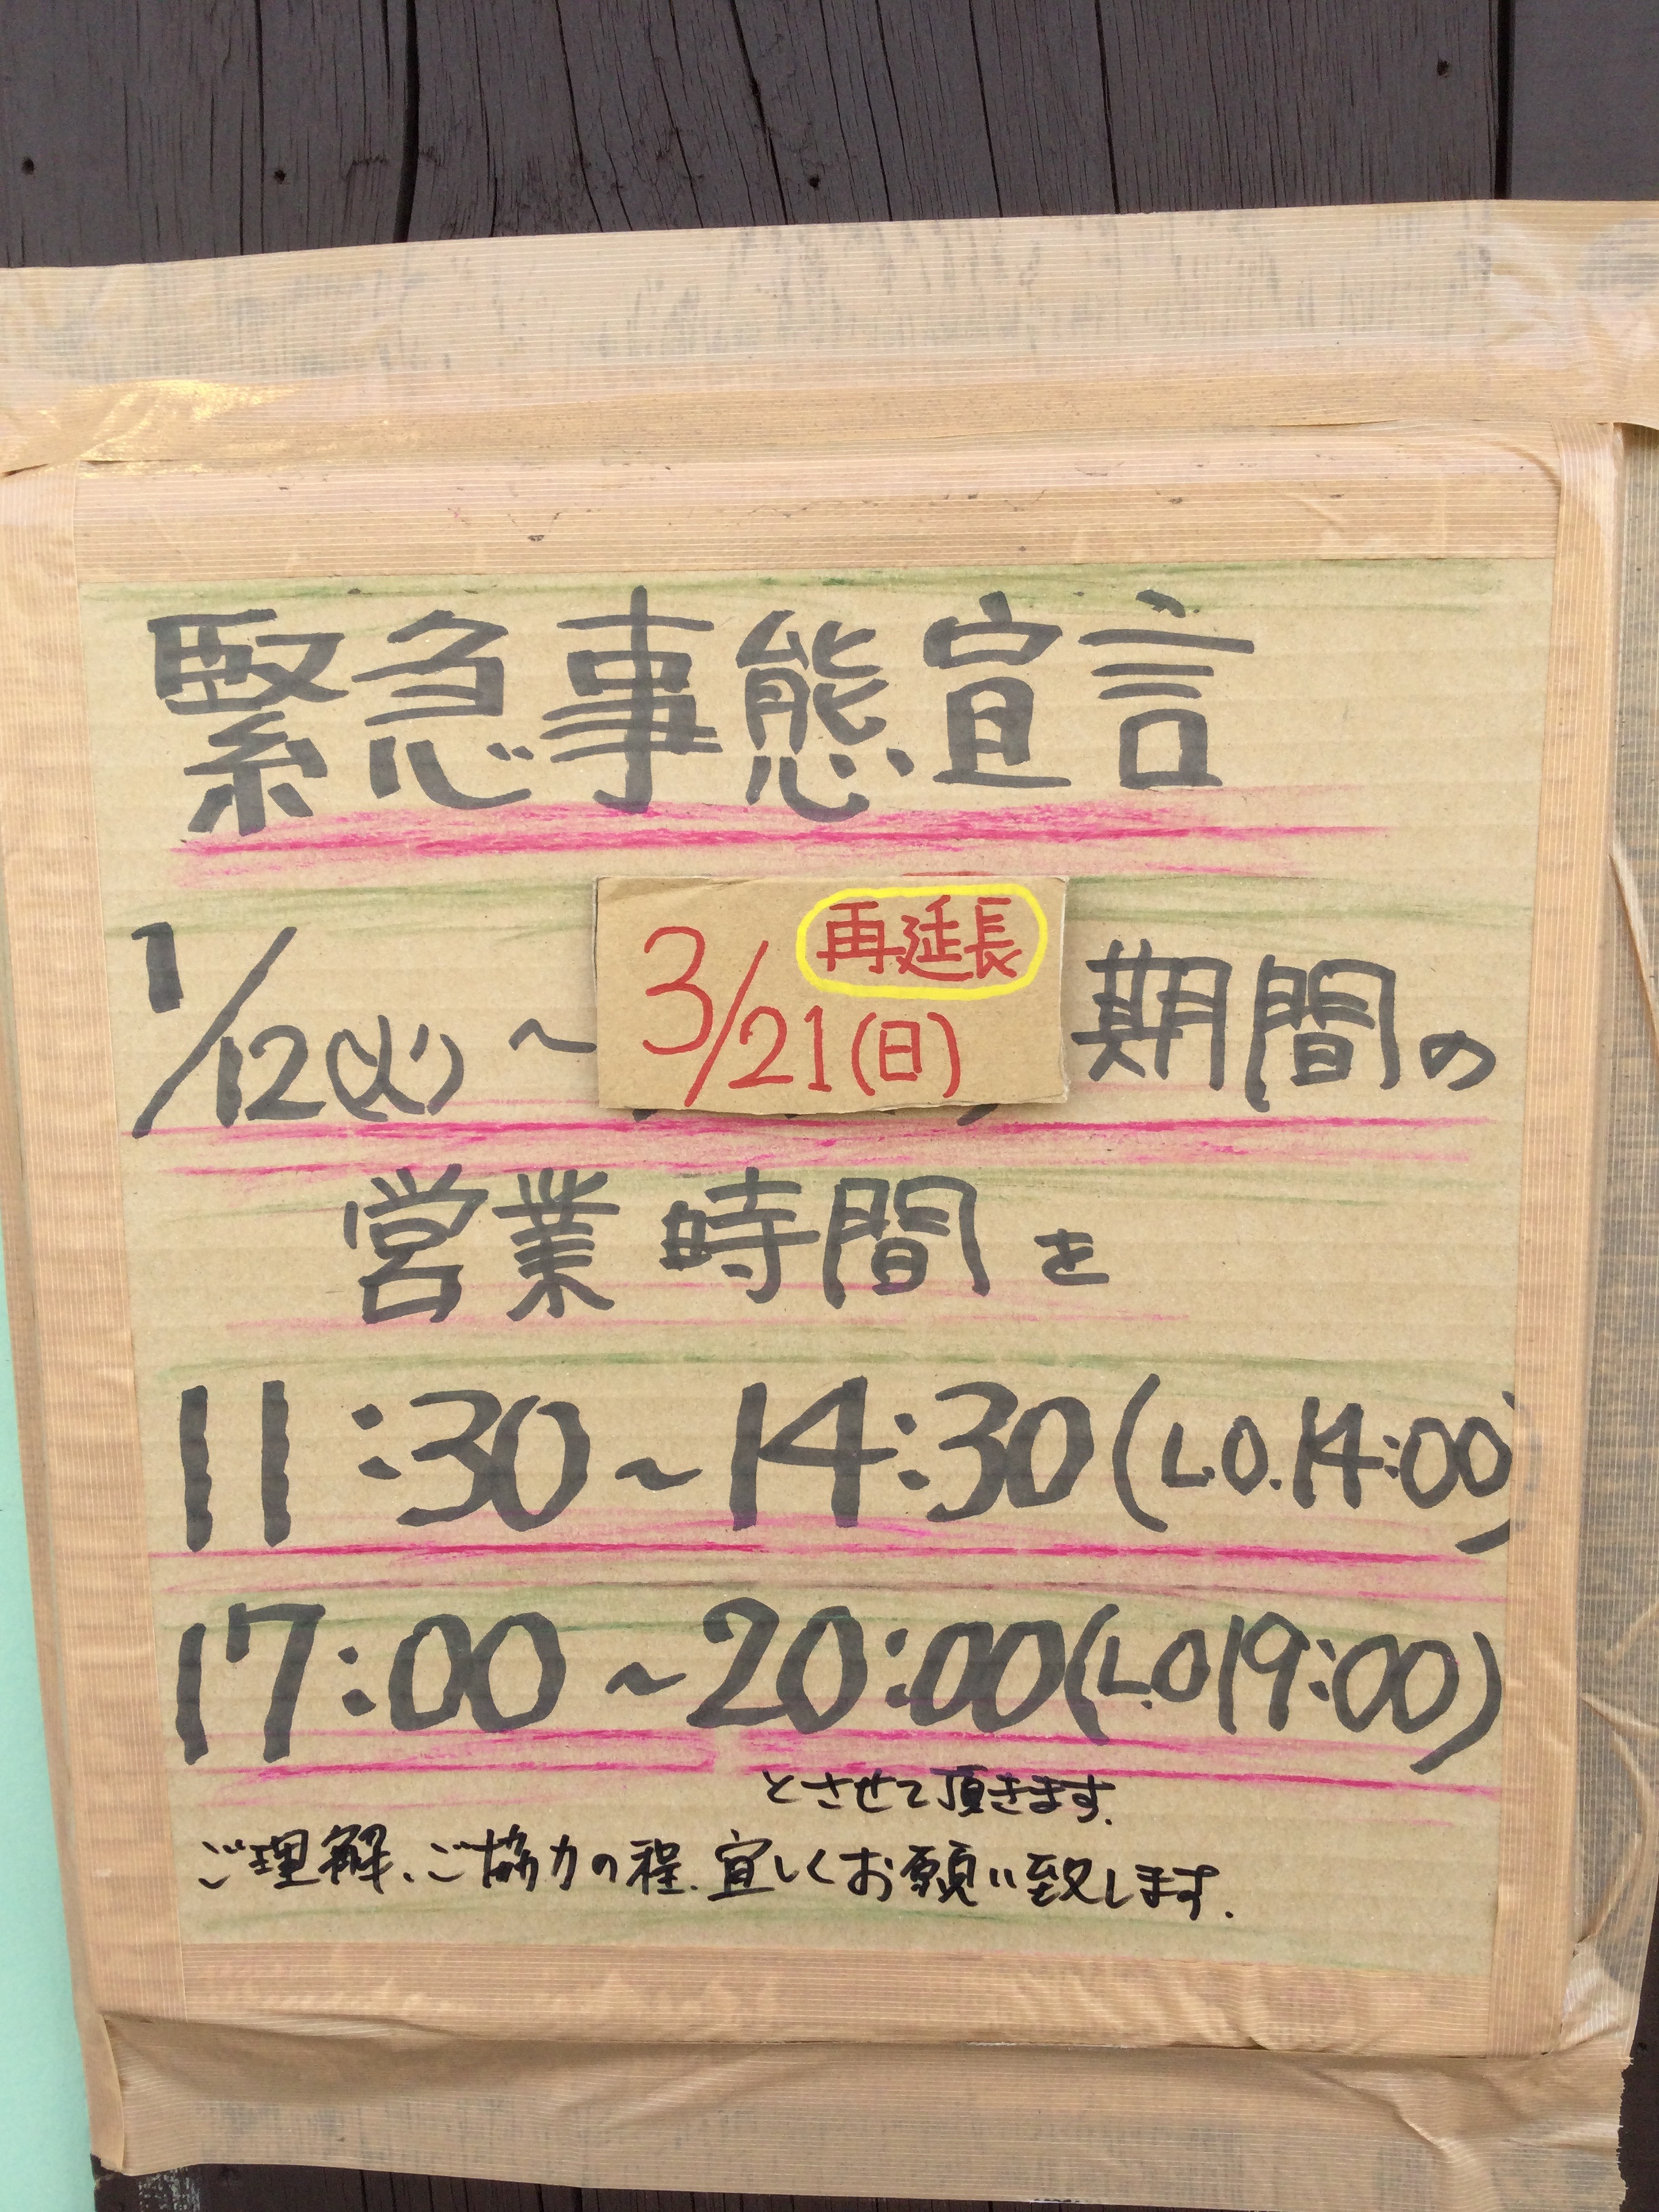 緊急事態宣言
再延長
1/12(火)～3/21(日)期間の
営業時間を
11:30～14:30(L.O.14:00)
17:00～20:00(L.O19:00)
とさせて頂きます.
ご理解、ご協力の程、宜しくお願い致します.